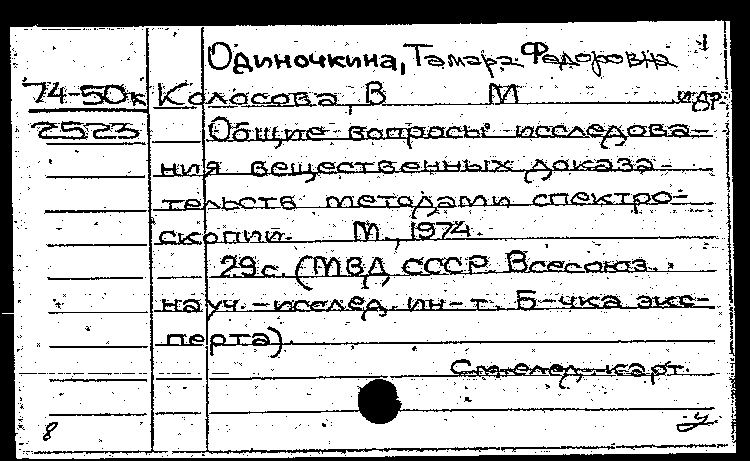 1
Одиночкина, Тамара Федоровна
74-50к Колосова, В М и др.
2523 Общие вопросы исследова-
ния вещественных доказа-
тельств методами спектро-
скопии. М., 1974.
29с. (МВД СССР. Всесоюз.
науч.-исслед. ин-т. Б-чка экс-
перта).
См. след. карт.
8